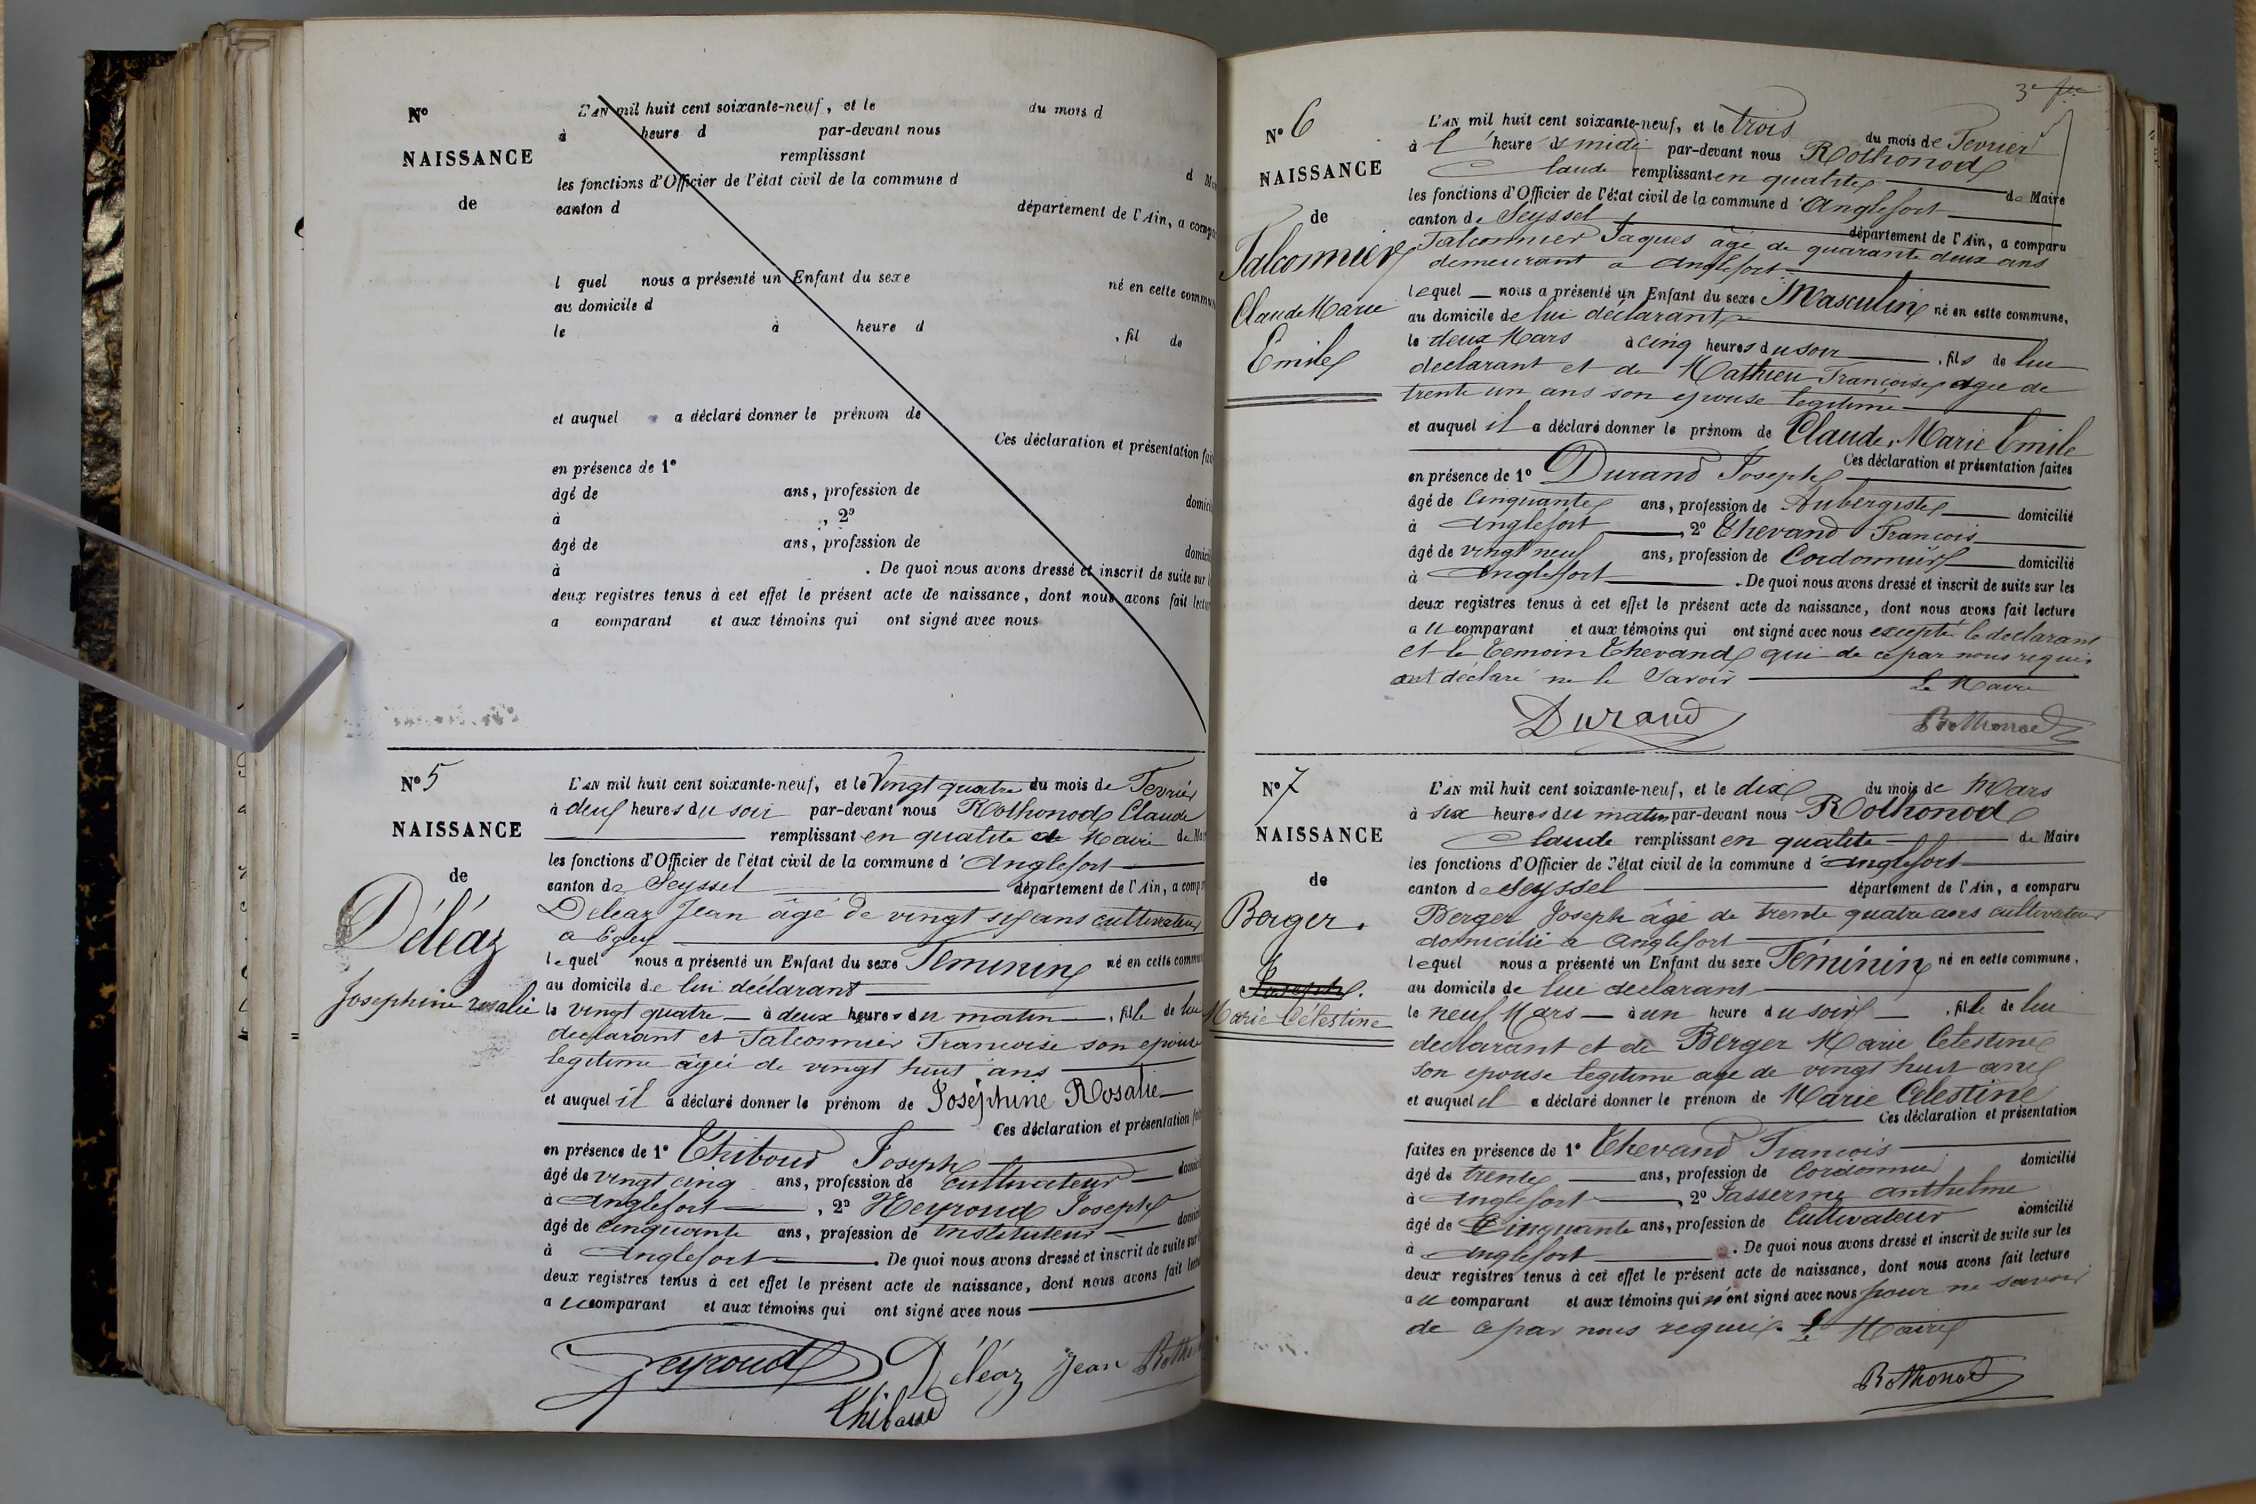 N°
NAISSANCE
de
L'AN mil huit cent soixante-neuf, et le du mois d
à heure d par-devant nous
remplissant d M
les fonctions d'Officier de l'état civil de la commune d
canton d département de l'Ain, a compa
l quel nous a présenté un Enfant du sexe né en cette commun
au domicile d
le à heure d , fil de
et auquel a déclaré donner le prénom de
Ces déclaration et présentation fai
en présence de 1°
âgé de ans, profession de domici
à , 2°
âgé de ans, profession de domici
à . De quoi nous avons dressé et inscrit de suite sur l
deux registres tenus à cet effet le présent acte de naissance, dont nous avons fait lectur
a comparant et aux témoins qui ont signé avec nous
N° 5
NAISSANCE
de
Déléaz
Josephine rosalie
L'AN mil huit cent soixante-neuf, et le Vingt quatre du mois de Fevrier
à deux heures du soir par-devant nous Rothonod Claude
remplissant en qualité de Maire de Ma
les fonctions d'Officier de l'état civil de la commune d'Anglefort
canton de Seyssel département de l'Ain, a comp
Deleaz Jean âgé de vingt six ans cultivateur
lequel nous a présenté un Enfant du sexe Féminin né en cette commu
au domicile de lui déclarant
le vingt quatre à deux heures du matin , fille de lui
declarant et Falconnier Francoise son epouse
legitime âgée de vingt huit ans
et auquel il a déclaré donner le prénom de Joséphine Rosalie
Ces déclaration et présentation fait
en présence de 1° Thiboud Joseph
âgé de vingt cinq ans, profession de cultivateur domici
à Anglefort , 2° Heyroud Joseph
âgé de cinquante ans, profession de instituteur domici
à Anglefort . De quoi nous avons dressé et inscrit de suite sur
deux registres tenus à cet effet le présent acte de naissance, dont nous avons fait lectu
a u comparant et aux témoins qui ont signé avec nous
Déléaz Jean
N° 6
NAISSANCE
de
Falconnier
Claude Marie
Emile
L'AN mil huit cent soixante-neuf, et le trois du mois de Fevrier
à l' heure d midi par-devant nous Rothonod
Claude remplissant en qualité de Maire
les fonctions d'Officier de l'état civil de la commune d'Anglefort
canton de Seyssel département de l'Ain, a comparu
Falconnier Jaques âgé de quarante deux ans
demeurant a Anglefort
lequel nous a présenté un Enfant du sexe Masculin né en cette commune,
au domicile de lui déclarant
le deux Mars à cinq heures du soir , fils de lui
declarant et de Mathieu Francoise agée de
trente un ans son epouse legitime
et auquel il a déclaré donner le prénom de Claude, Marie Emile
Ces déclaration et présentation faites
en présence de 1° Durand Joseph
âgé de Cinquante ans, profession de Aubergiste domicilié
à Anglefort , 2° Thevand Francois
âgé de vingt neuf ans, profession de Cordonnier domicilié
à Anglefort . De quoi nous avons dressé et inscrit de suite sur les
deux registres tenus à cet effet le présent acte de naissance, dont nous avons fait lecture
a u comparant et aux témoins qui ont signé avec nous excepté le declarant
et le temoin Thevand qui de ce par nous requis
ont déclaré ne le Savoir Le Maire
Durand Rothonod
N° 7
NAISSANCE
de
Berger.
Joseph.
Marie Célestine
L'AN mil huit cent soixante-neuf, et le dix du mois de Mars
à six heures du matin par-devant nous Rothonod
Claude remplissant en qualité de Maire
les fonctions d'Officier de l'état civil de la commune d'Anglefort
canton de Seyssel département de l'Ain, a comparu
Berger Joseph âgé de trente quatre ans cultivateur
domicilié a Anglefort
lequel nous a présenté un Enfant du sexe Féminin né en cette commune,
au domicile de lui declarant
le neuf Mars à un heure du soir , fille de lui
declarant et de Berger Marie Celestine
son epouse legitime age de vingt huit ans
et auquel il a déclaré donner le prénom de Marie Celestine
Ces déclaration et présentation
faites en présence de 1° Thevand Francois
âgé de trente ans, profession de Cordonnier domicilié
à Anglefort , 2° Passerme anthelme
âgé de Cinquante ans, profession de Cultivateur domicilié
à Anglefort . De quoi nous avons dressé et inscrit de suite sur les
deux registres tenus à cet effet le présent acte de naissance, dont nous avons fait lecture
a u comparant et aux témoins qui n'ont signé avec nous pour ne savoir
de ce par nous requis. Le Maire
Rothonod